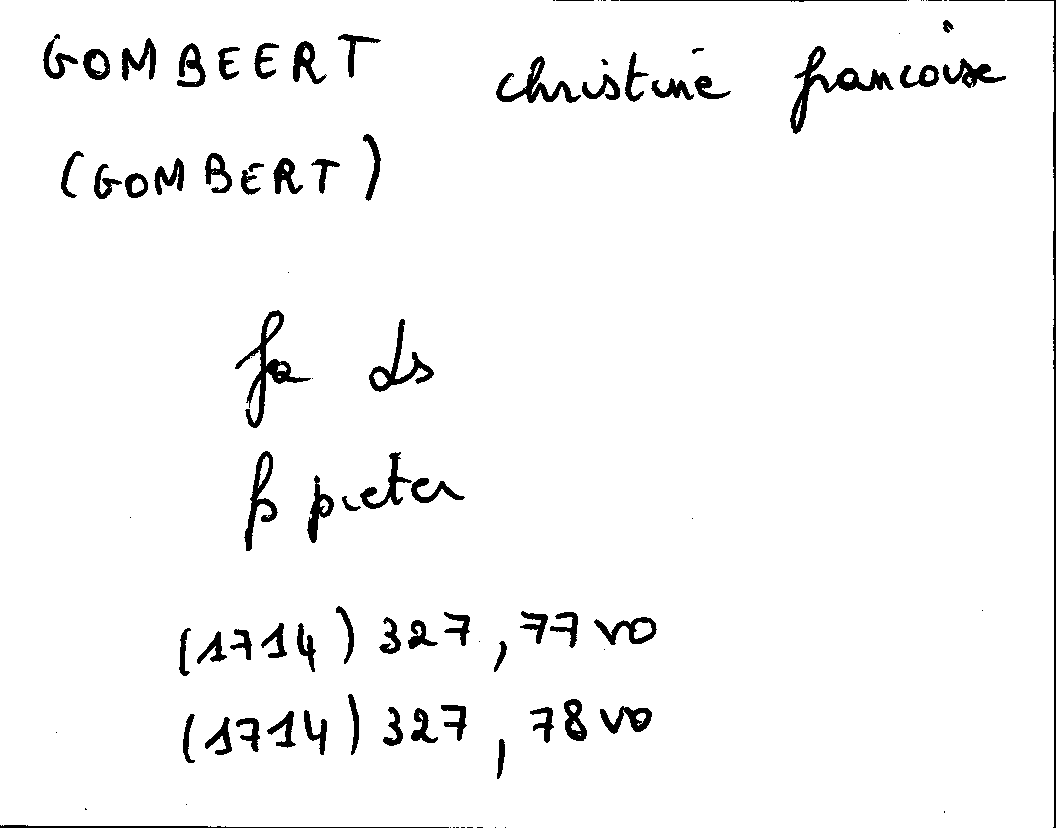 GOMBEERT christine francoise
(GOMBERT)
fa ds
p pieter
(1714) 327, 77 vo
(1714) 327, 78 vo